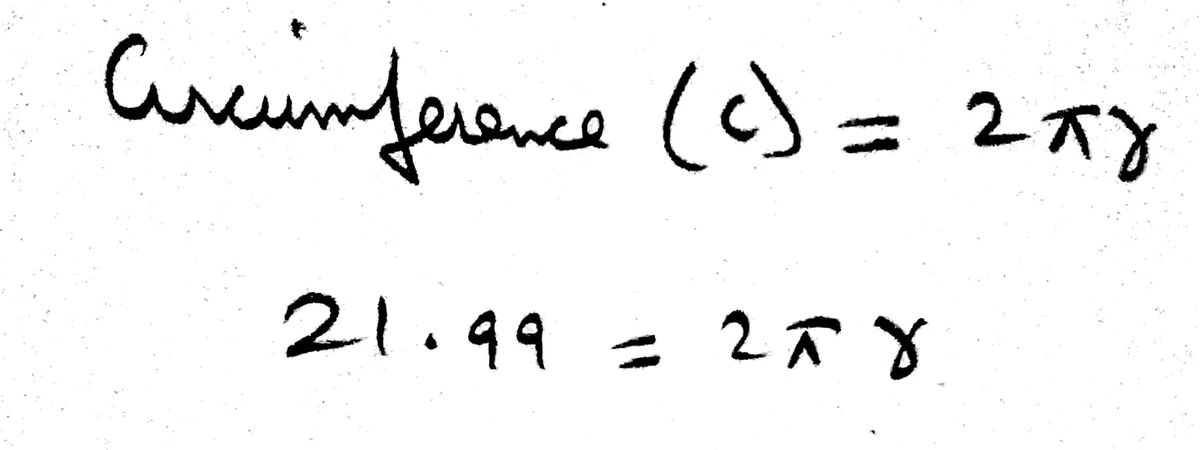 Circumference (c) = 2πr
21.99 = 2πr